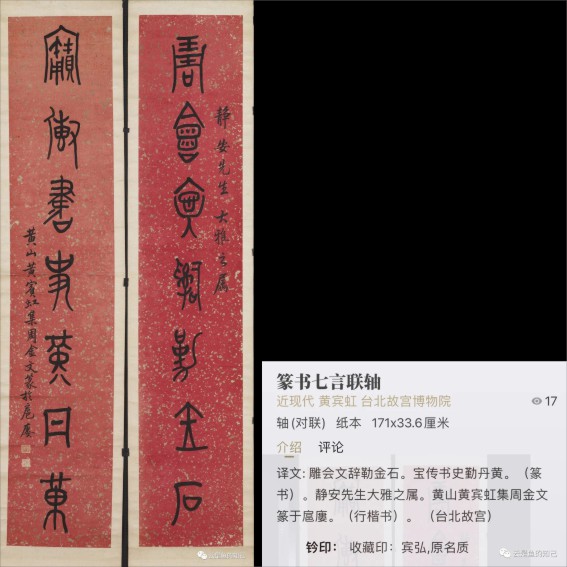 周會文辭勒金石
靜安先生大雅之屬
寶傳書史堇丹黃
黄山黄賓虹集周金文篆於扈廔
篆书七言联轴
近现代 黄宾虹 台北故宫博物院
17
轴(对联) 纸本 171x33.6厘米
介绍 评论
译文: 雕会文辞勒金石。宝传书史勤丹黄。（篆
书）。静安先生大雅之属。黄山黄宾虹集周金文
篆于扈廔。（行楷书）。 （台北故宫）
钤印： 收藏印：宾弘,原名质